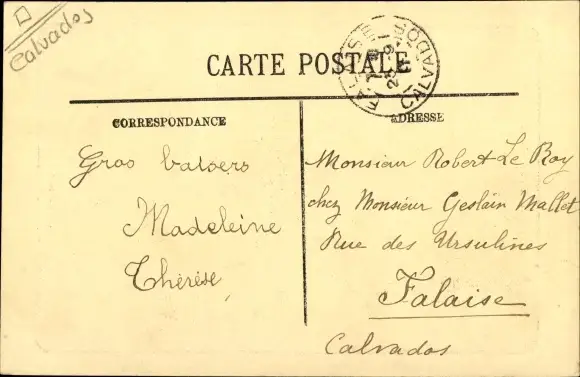 Calvados
CARTE POSTALE
FALAISE
CALVADOS
CORRESPONDANCE
ADRESSE
Gros baisers
Madeleine
Thérèse
Monsieur Robert Le Roy
chez Monsieur Geslain Mallet
Rue des Ursulines
Falaise
Calvados